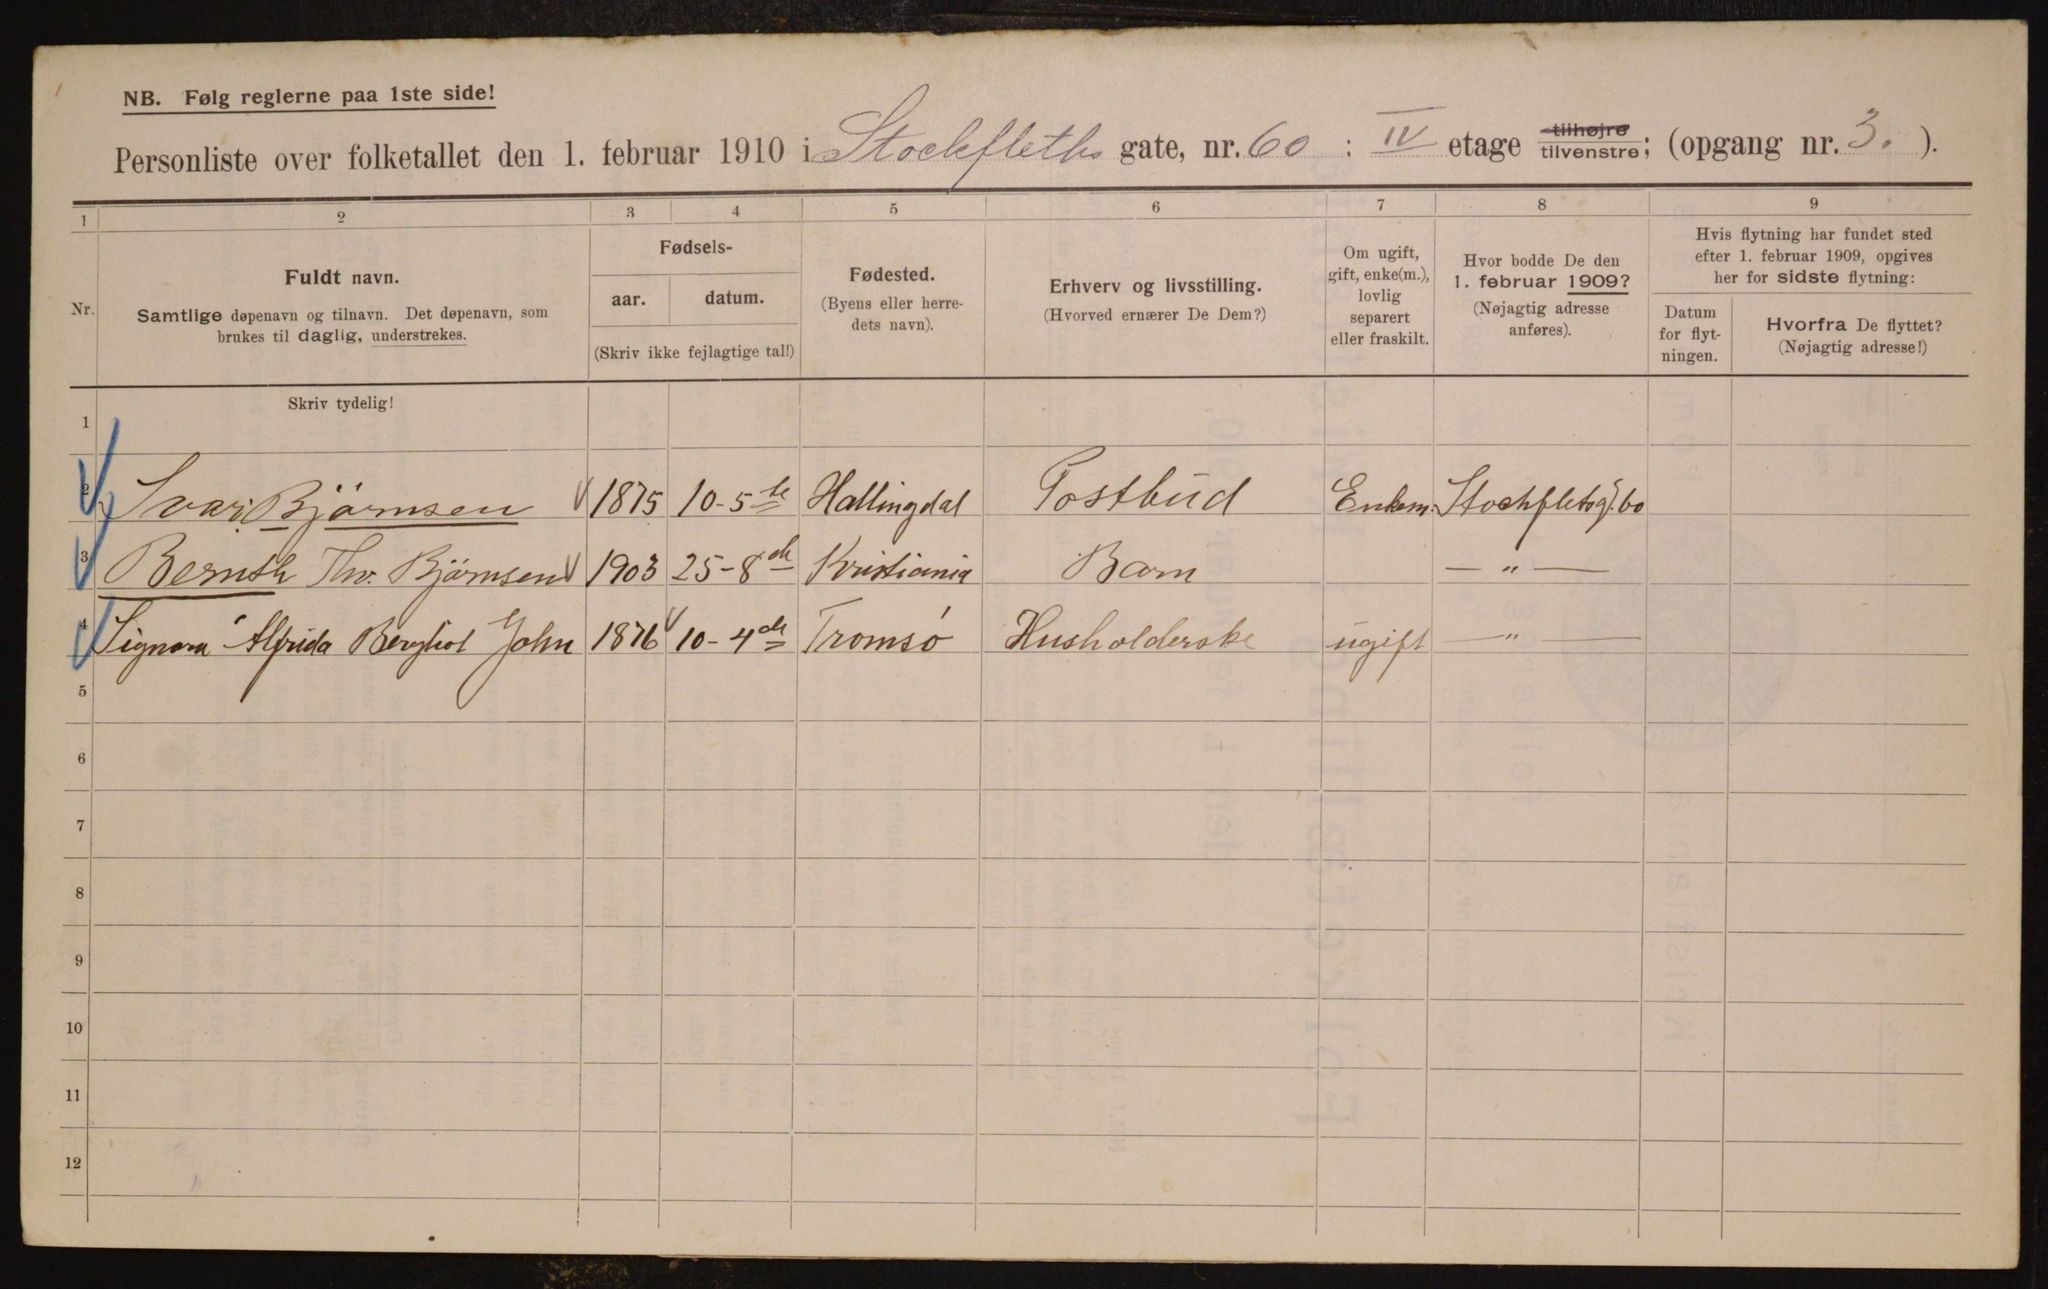 NB. Følg reglerne paa 1ste side!
Personliste over folketallet den 1. februar 1910 i Stockfleths gate, nr. 60 : IV etage tilhøjre tilvenstre; (opgang nr. 3. ).
1 2 3 4 5 6 7 8 9
Nr.
Fuldt navn.
Samtlige døpenavn og tilnavn. Det døpenavn, som
brukes til daglig, understrekes.
Fødsels-
aar. datum.
(Skriv ikke fejlagtige tal!)
Fødested.
(Byens eller herre-
dets navn).
Erhverv og livsstilling.
(Hvorved ernærer De Dem?)
Om ugift,
gift, enke(m.),
lovlig
separert
eller fraskilt.
Hvor bodde De den
1. februar 1909?
(Nøjagtig adresse
anføres).
Hvis flytning har fundet sted
efter 1. februar 1909, opgives
her for sidste flytning:
Datum
for flyt-
ningen.
Hvorfra De flyttet?
(Nøjagtig adresse!)
Skriv tydelig!
1
2 Ivar Björnsen 1875 10-5te Hallingdal Postbud Enkem. Stochfletsg. 60
3 Bernth Thv. Björnsen 1903 25-8de Kristiania Barn — " —
4 Signora Alfrida Bergliot John 1876 10-4de Tromsó Husholderske ugift — " —
5
6
7
8
9
10
11
12